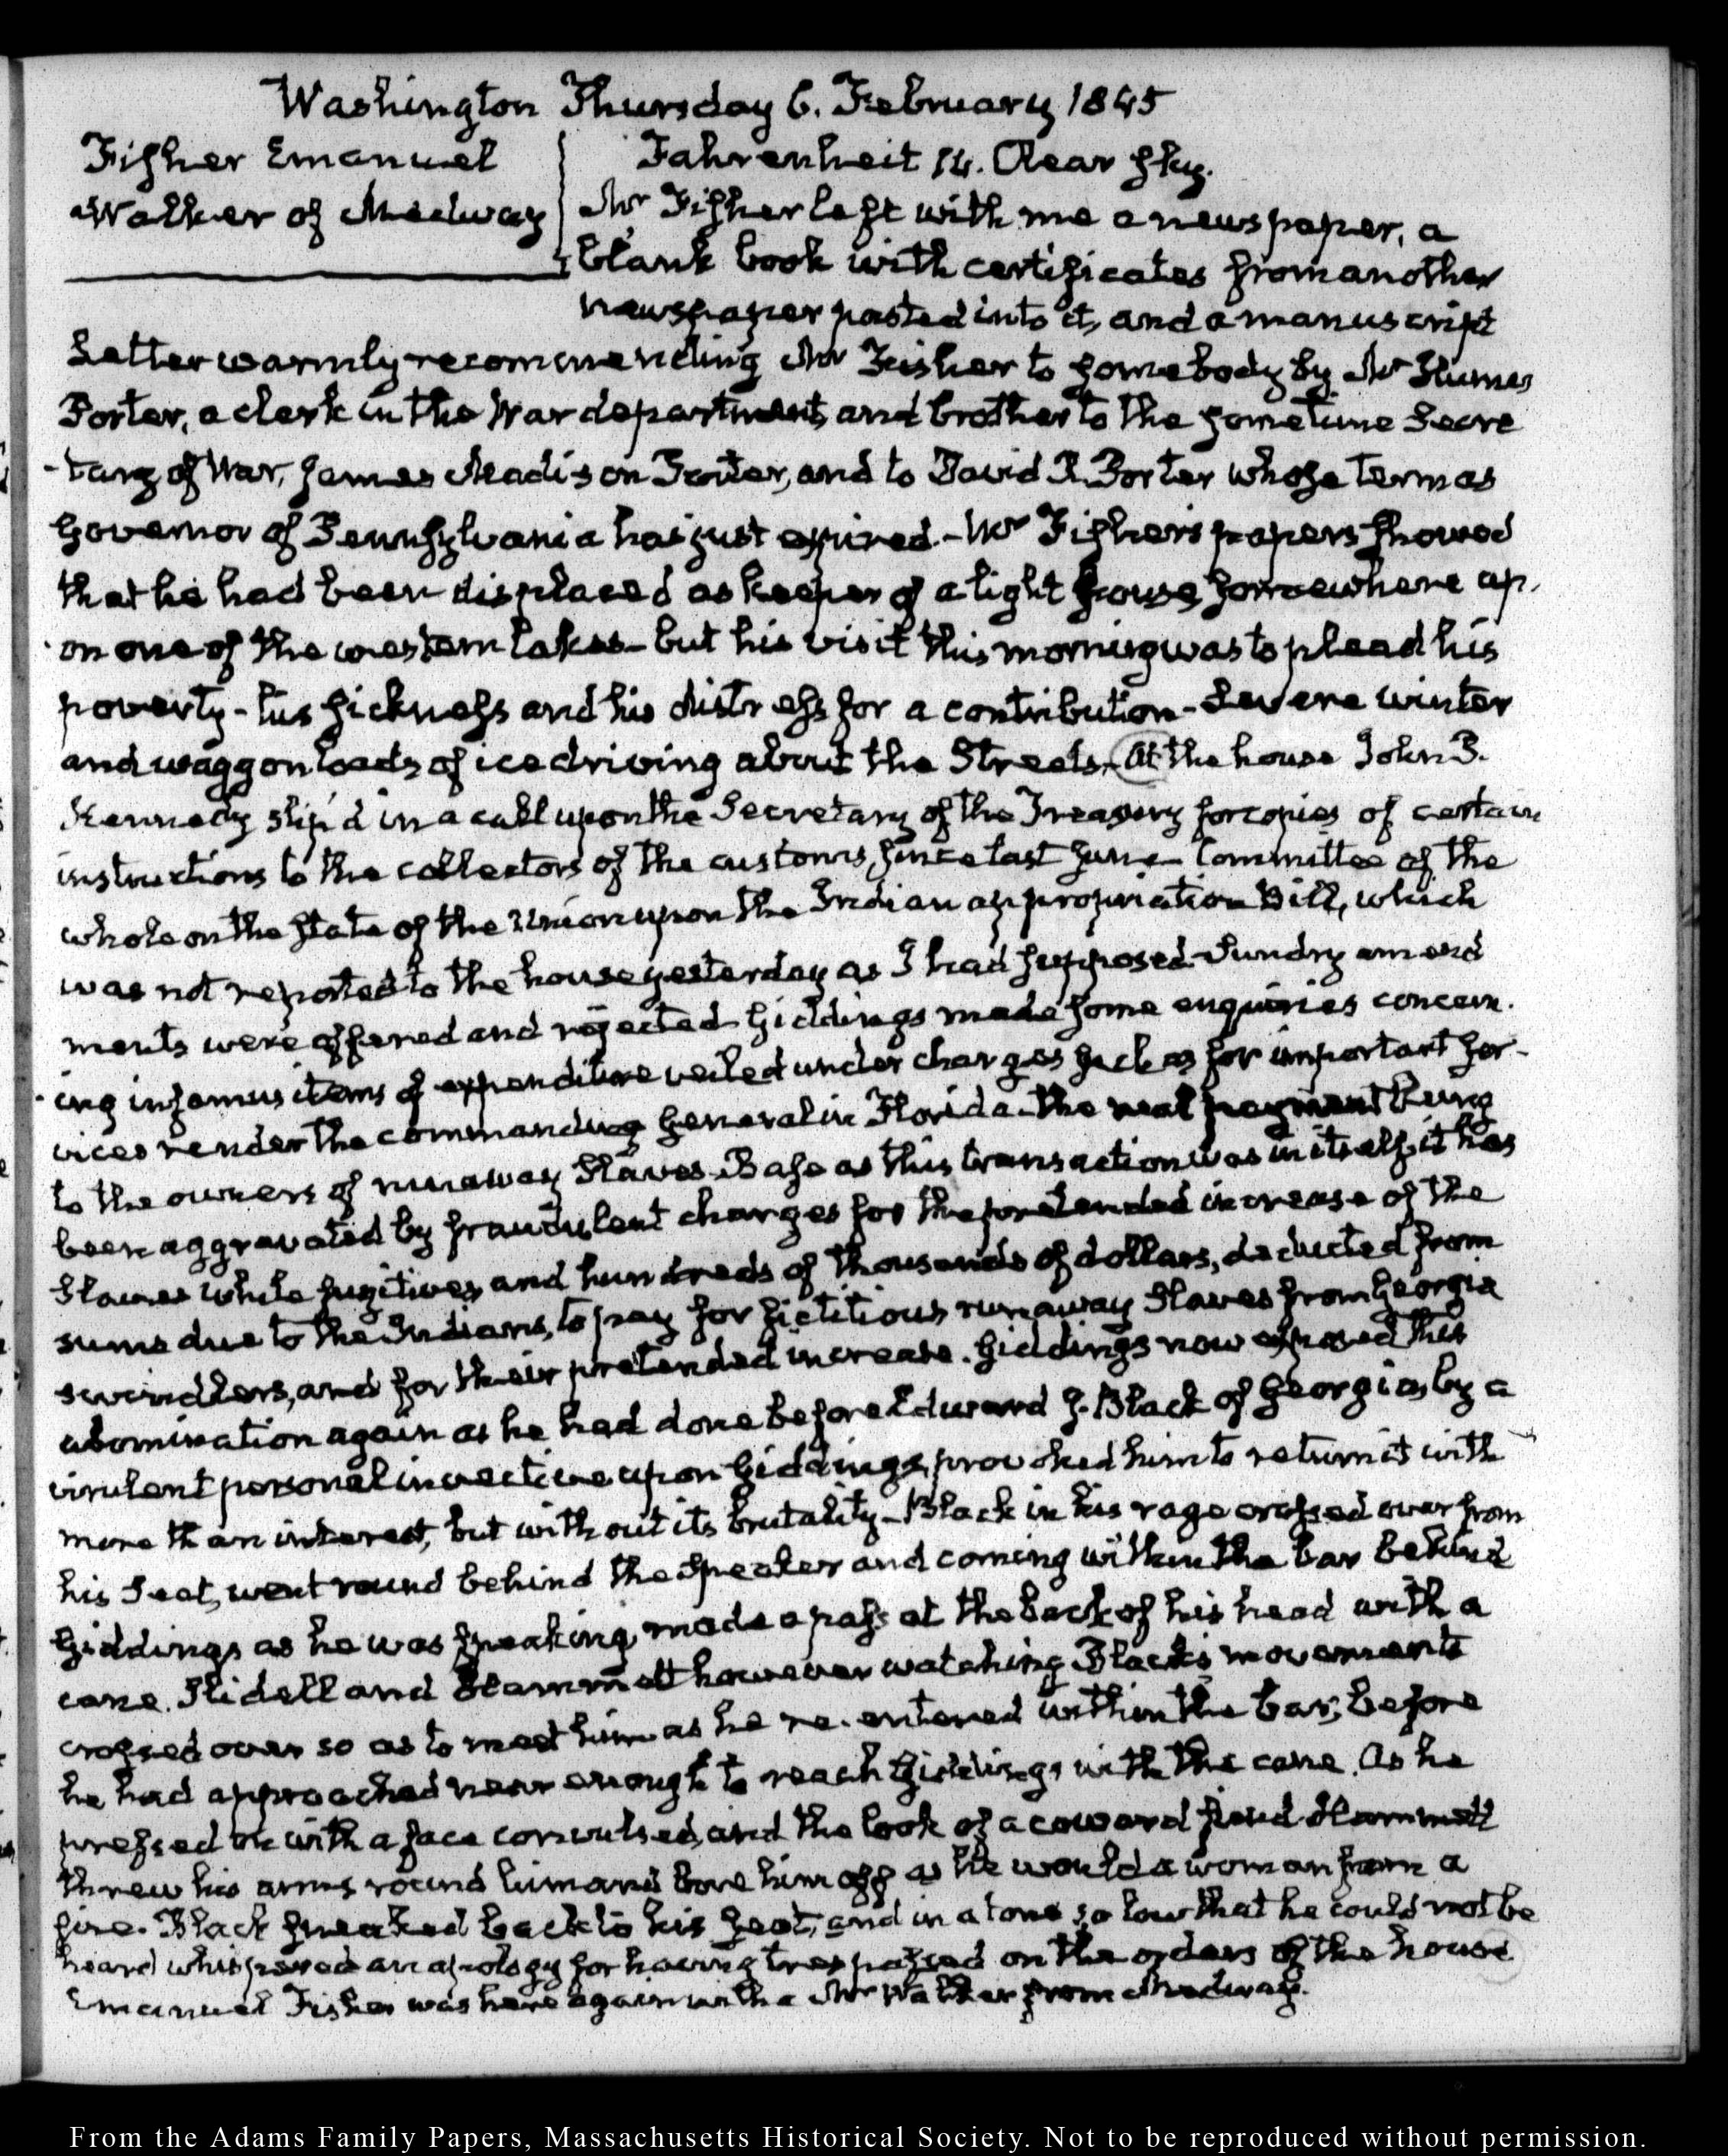 Washington Thursday 6. February 1845
Fisher Emanuel
Walker of Medway
Fahrenheit 14. Clear sky.
Mr Fisher left with me a newspaper, a
blank book with certificates from another
newspaper pasted into it, and a manuscript
Letter warmly recommending Mr Fisher to somebody by Mr
Porter, a clerk in the War department, and brother to the sometime Secre
-tary of War, James Madison Porter, and to David R. Porter whose term as
Governor of Pennsylvania has just expired.- Mr Fisher's papers showed
that he had been displaced as keeper of a light house somewhere up-
-on one of the western lakes- but his visit this morning was to plead his
poverty- his sickness and his distress for a contribution- Severe winter
and waggon loads of ice driving about the Streets. At the house John P.
Kennedy slip'd in a call upon the Secretary of the Treasury for copies of certain
instructions to the collectors of the customs, since last June- Committee of the
whole on the state of the Union upon the Indian appropriation Bill, which
was not reported to the house yesterday as I had supposed- Sundry amend
ments were offered and rejected- Giddings made some enquiries concern-
-ing infamus items of expenditure veiled under charges such as for important ser-
vices render the commanding General in Florida- the real payment being
to the owners of runaway Slaves- Base as this transaction was in itself, it has
been aggravated by fraudulent charges for the pretended increase of the
Slaves while fugitives, and hundreds of thousands of dollars, deducted from
sums due to the Indians, to pay for fictitious runaway Slaves from Georgia
swindlers, and for their pretended increase. Giddings now exposed this
abomination again as he had done before Edward J. Black of Georgia, by a
virulent personal invective upon Giddings, provoked him to return it with
more than interest, but without its brutality- Black in his rage crossed over from
his Seat, went round behind the Speaker and coming within the bar behind
Giddings as he was speaking, made a pass at the back of his head with a
cane. Slidell and Hammett however watching Black's movements
crossed over so as to meet him as he re-entered within the bar, before
he had approached near enough to reach Giddings with the cane. As he
pressed on with a face convulsed, and the look of a coward fiend Hammett
threw his arms round him and bore him off as he would a woman from a
fire. Black sneaked back to his seat, and in a tone so low that he could not be
heard whispered an apology for having trespassed on the orders of the house
Emanuel Fisher was here again with a Mr Walker from Medway.
From the Adams Family Papers, Massachusetts Historical Society. Not to be reproduced without permission.